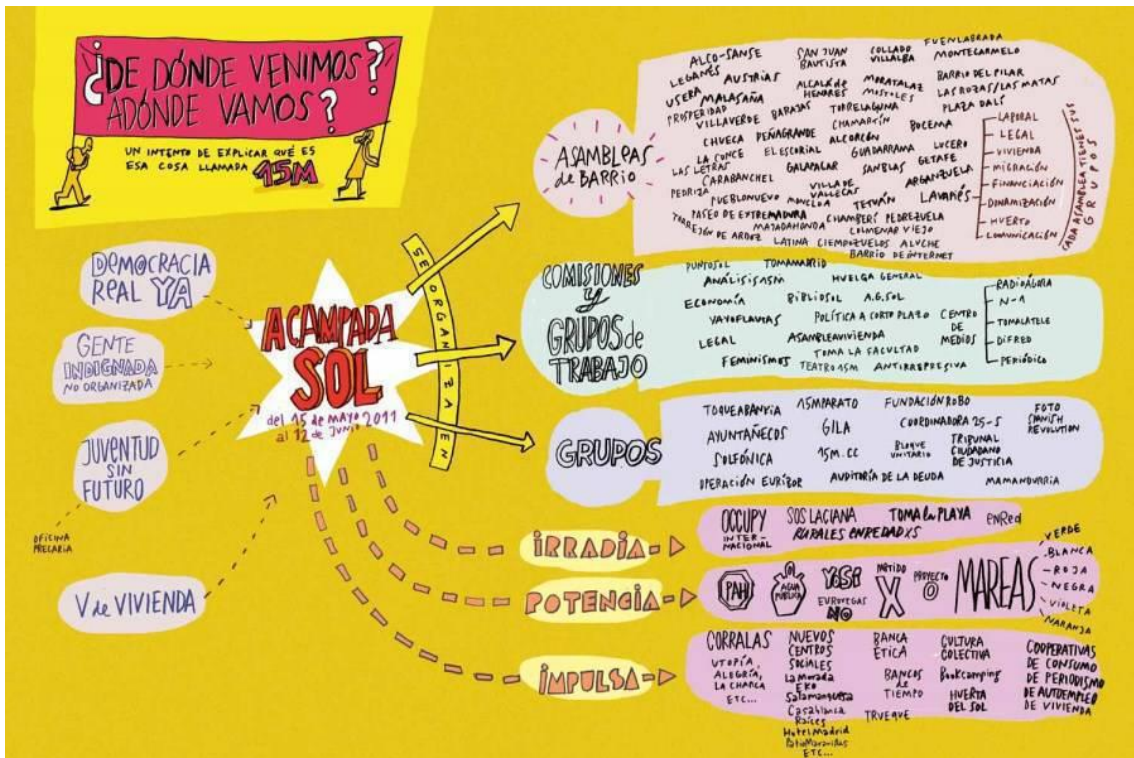 ¿DE DÓNDE VENIMOS?
ADÓNDE VAMOS?
UN INTENTO DE EXPLICAR QUÉ ES
ESA COSA LLAMADA 15M
DEMOCRACIA
REAL YA
GENTE
INDIGNADA
NO ORGANIZADA
JUVENTUD
SIN
FUTURO
OFICINA
PRECARIA
V de VIVIENDA
ACAMPADA
SOL
del 15 de MAYO 2011
al 12 de JUNIO
SE ORGANIZA EN
ASAMBLEAS
de BARRIO
ALCO-SANSE
SAN JUAN
BAUTISTA
COLLADO
VILLALBA
FUENLABRADA
MONTECARMELO
LEGANÉS
AUSTRIAS
ALCALÁ de
HENARES
MORATALAZ
MOSTOLES
BARRIO DEL PILAR
LAS ROZAS/LAS MATAS
USERA
MALASAÑA
PROSPERIDAD
VILLAVERDE
BARAJAS
TORRELAGUNA
PLAZA DALÍ
CHAMARTÍN
BOCEMA
CHUECA
PEÑAGRANDE
ALCORCÓN
LA CONCE
EL ESCORIAL
GUADARRAMA
LUCERO
LAS LETRAS
CARABANCHEL
GALAPAGAR
SANBLAS
GETAFE
PEDRIZA
PUEBLONUEVO
MONCLOA
VILLA DE
VALLECAS
TETUÁN
ARGANZUELA
LAVAPIÉS
PASEO DE EXTREMADURA
CHAMBERÍ
PEDREZUELA
TORREJÓN DE ARDOZ
MAJADAHONDA
COLMENAR VIEJO
LATINA
CIEMPOZUELOS
ALUCHE
BARRIO DE INTERNET
LABORAL
LEGAL
VIVIENDA
MIGRACIÓN
FINANCIACIÓN
DINAMIZACIÓN
HUERTO
COMUNICACIÓN
CADA ASAMBLEA TIENE SUS
GRUPOS
COMISIONES
Y
GRUPOS de
TRABAJO
PUNTOSOL
TOMAMADRID
ANÁLISIS15M
HUELGA GENERAL
ECONOMÍA
BIBLIOSOL
A.G.SOL
YAYOFLAUTAS
POLÍTICA A CORTO PLAZO
LEGAL
ASAMBLEAVIVIENDA
TOMA LA FACULTAD
FEMINISMOS
TEATRO 15M
ANTIRREPRESIVA
CENTRO
DE
MEDIOS
RADIOÁGORA
N-1
TOMALATELE
DIFRED
PERIÓDICO
GRUPOS
TOQUEABANKIA
15MPARATO
FUNDACIÓN ROBO
FOTO
SPANISH
REVOLUTION
AYUNTAÑECOS
GILA
COORDINADORA 25-S
SOLFÓNICA
15M.CC
BLOQUE
UNITARIO
TRIBUNAL
CIUDADANO
DE JUSTICIA
OPERACIÓN EURIBOR
AUDITORÍA DE LA DEUDA
MAMANDURRIA
IRRADIA
OCCUPY
INTER-
NACIONAL
SOS LACIANA
TOMA la PLAYA
enRed
RURALES ENREDADXS
POTENCIA
PAH
AGUA
PÚBLICA
YoSí
EUROVEGAS
NO
PARTIDO
X
PROYECTO
O
MAREAS
VERDE
BLANCA
ROJA
NEGRA
VIOLETA
NARANJA
IMPULSA
CORRALAS
UTOPÍA,
ALEGRÍA,
LA CHARCA
ETC...
NUEVOS
CENTROS
SOCIALES
La Morada
EKO
Salamanquesa
Casablanca
Raíces
Hotel Madrid
Patio Maravillas
ETC...
BANCA
ÉTICA
BANCOS
de
TIEMPO
TRUEQUE
CULTURA
COLECTIVA
Bookcamping
HUERTA
DEL SOL
COOPERATIVAS
DE CONSUMO
DE PERIODISMO
DE AUTOEMPLEO
DE VIVIENDA